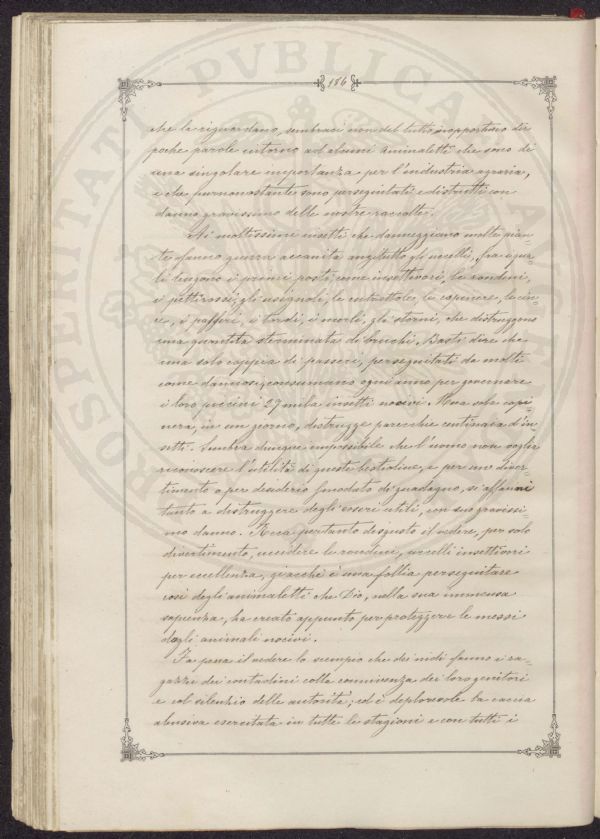 186
che la riguardano, sembraci non del tutto inopportuno dir
poche parole intorno ad alcuni animaletti che sono di
una singolare importanza per l'industria agraria,
e che purnonostante sono perseguitati e distrutti con
danno gravissimo delle nostre raccolte.
Ai moltissimi insetti che danneggiano molte pian-
te fanno guerra accanita anzitutto gli uccelli, fra i qua-
li tengono i primi posti, come insettivori, le rondini,
i pettirossi, gli usignoli, le cutrettole, le capinere, le cin-
ce, i passeri, i tordi, i merli, gli storni, che distruggono
una quantità sterminata di bruchi. Basti dire che
una sola coppia di passeri, perseguitati da molti
come dannosi, consumano ogni anno per governare
i loro piccini 29 mila insetti nocivi. Una sola capi-
nera, in un giorno, distrugge parecchie centinaia d'in-
setti. Sembra dunque impossibile che l'uomo non voglia
riconoscere l'utilità di queste bestioline, e per un diver-
timento o per desiderio smodato di guadagno, si affanni
tanto a distruggere degli esseri utili, con suo gravissi-
mo danno. Reca pertanto disgusto il vedere, per solo
divertimento, uccidere le rondini, uccelli insettivori
per eccellenza, giacchè è una follia perseguitare
così degli animaletti che Dio, nella sua immensa
sapienza, ha creato appunto per proteggere le messi
dagli animali nocivi.
Fa pena il vedere lo scempio che dei nidi fanno i ra-
gazzi dei contadini colla connivenza dei loro genitori
e col silenzio delle autorità; ed è deplorevole la caccia
abusiva esercitata in tutte le stagioni e con tutti i
PROSPERITATI PVBLICAE AVGENDAE